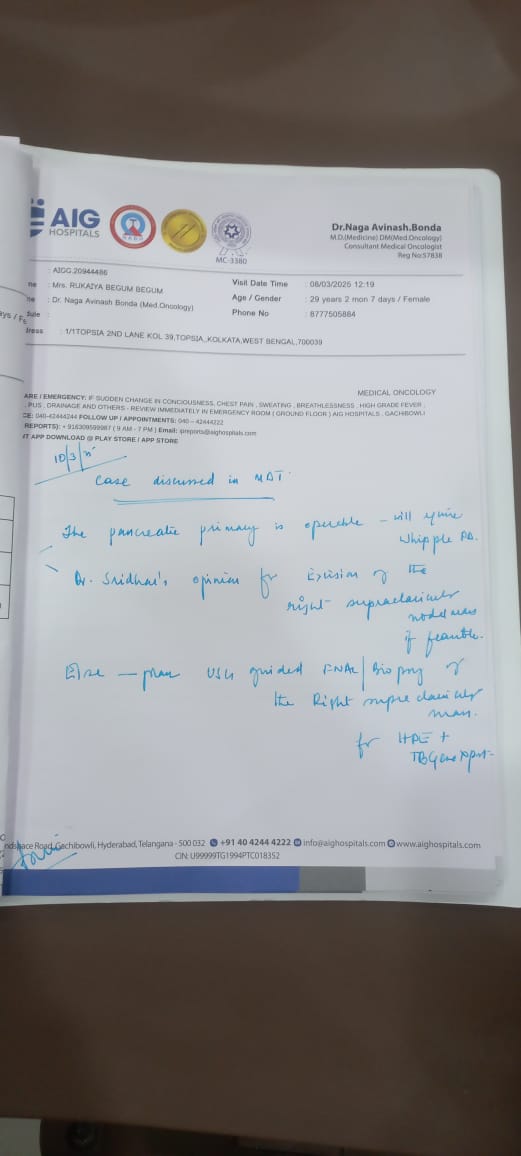 AIG
HOSPITALS
MC-3380
Dr.Naga Avinash.Bonda
M.D.(Medicine) DM(Med.Oncology)
Consultant Medical Oncologist
Reg No:57838
: AIGG.20944486
me : Mrs. RUKAIYA BEGUM BEGUM
Visit Date Time : 08/03/2025 12:19
me : Dr. Naga Avinash Bonda (Med.Oncology)
Age / Gender : 29 years 2 mon 7 days / Female
dule :
Phone No : 8777505884
dress : 1/1TOPSIA 2ND LANE KOL 39,TOPSIA,,KOLKATA,WEST BENGAL,700039
MEDICAL ONCOLOGY
ARE / EMERGENCY: IF SUDDEN CHANGE IN CONCIOUSNESS, CHEST PAIN , SWEATING , BREATHLESSNESS , HIGH GRADE FEVER ,
PUS , DRAINAGE AND OTHERS - REVIEW IMMEDIATELY IN EMERGENCY ROOM ( GROUND FLOOR ) AIG HOSPITALS , GACHIBOWLI
CE: 040-42444244 FOLLOW UP / APPOINTMENTS: 040 – 42444222
REPORTS): + 916309599987 ( 9 AM - 7 PM ) Email: ipreports@aighospitals.com
IT APP DOWNLOAD @ PLAY STORE / APP STORE
10/3/25
Case discussed in MDT.
The pancreatic primary is operable – will require
Whipple PD.
Dr. Sridhar's opinion for Excision of the
right supraclavicular
nodal mass
if feasible.
Else – plan USG guided FNAC/Biopsy of
the Right supraclavicular
mass.
for HPE +
TB Gene xpert
ndspace Road, Gachibowli, Hyderabad, Telangana - 500 032 +91 40 4244 4222 info@aighospitals.com www.aighospitals.com
CIN: U99999TG1994PTC018352